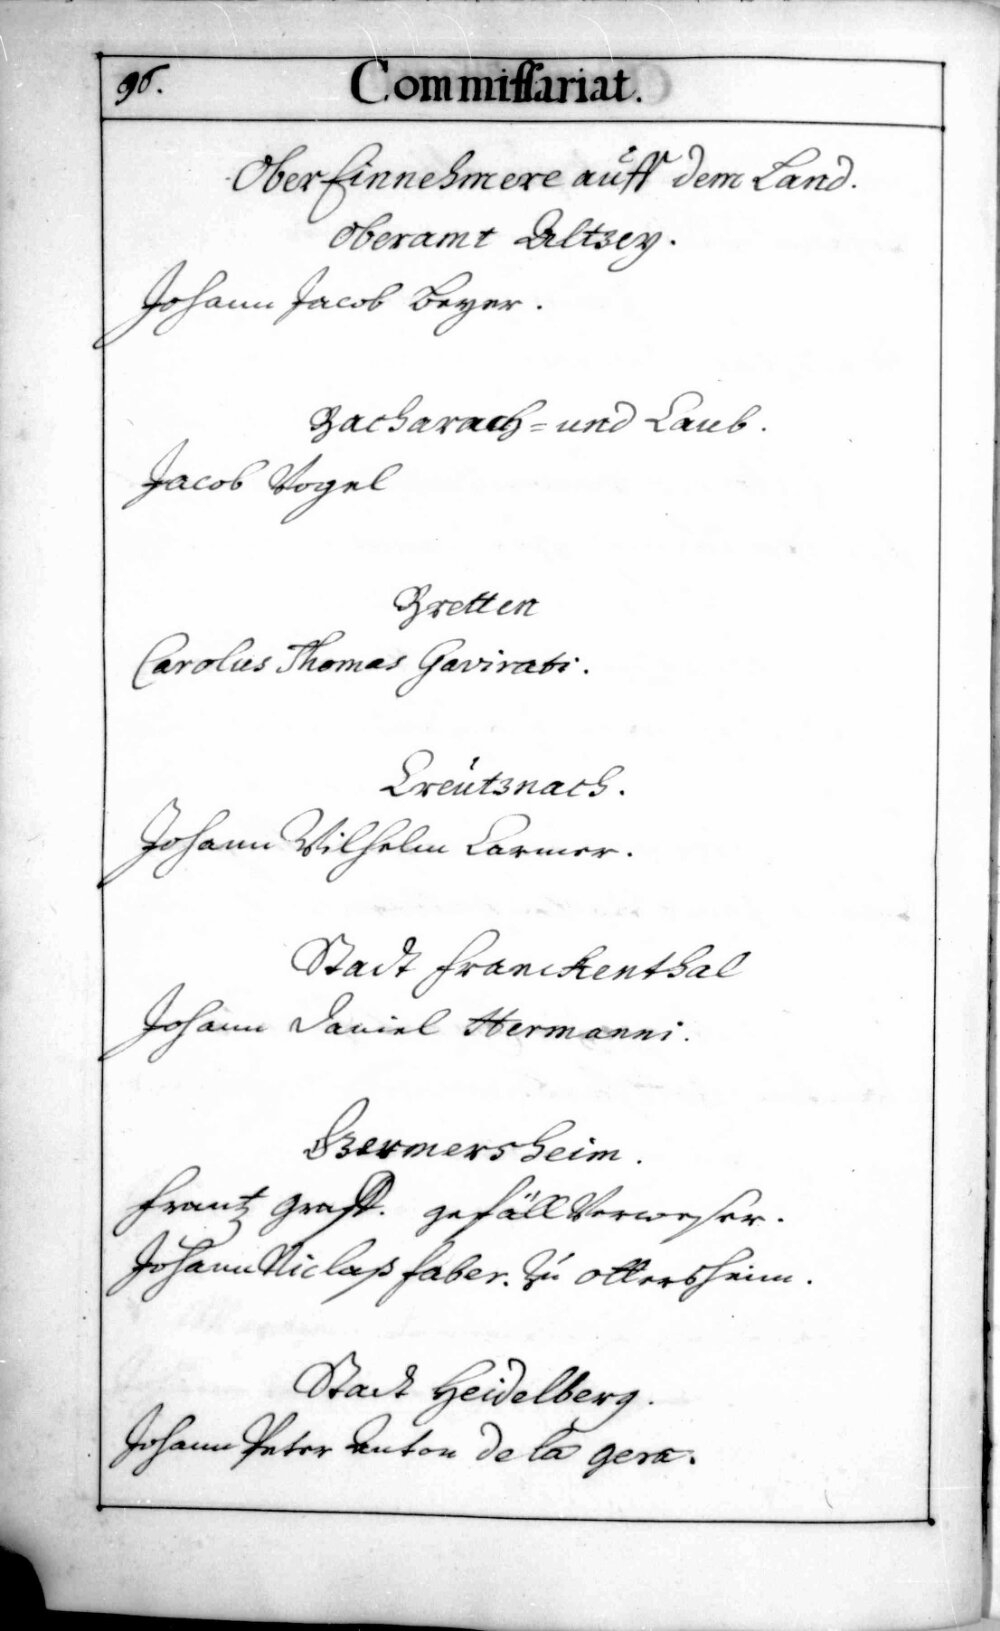 96.
Commissariat.
Ober Einnehmere auff dem Land.
Oberamt Altzey.
Johann Jacob Beyer.
Bacharach= und Caub.
Jacob Vogel
Bretten
Carolus Thomas Gavirati.
Creütznach.
Johann Wilhelm Carmer.
Stadt Franckenthal
Johann Daniel Hermanni.
Germersheim.
Frantz Graff. gefäll Verweser.
Johann Niclaß Faber. Zu Ottersheim.
Stadt Heidelberg.
Johann Peter Anton de la gera.